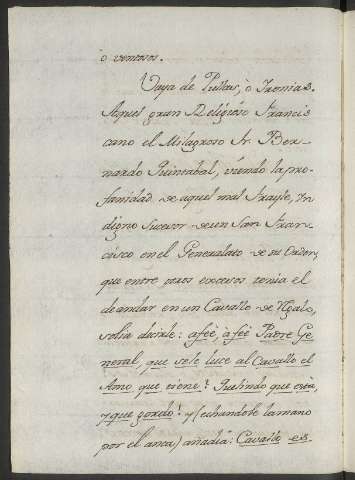 ò ventosos.
Vaya de Pullas, ò Ironias.
Aquel gran Religioso Francis
cano el Milagroso Fr. Ber
nardo Quintabal, viendo la pro-
fanidad de aquel mal frayle, In
digno Sucesor de un San Fran
cisco en el Generalato de su Orden,
que entre otros excesos tenia el
de andar en un Cavallo de Regalo,
solia decirle: afeè, afeè Padre Ge
neral, que se le luce al Cavallo el
Amo que tiene! Pulindo que està,
y que gordo! y (echandole la mano
por el anca) añadia: Cavallo es-